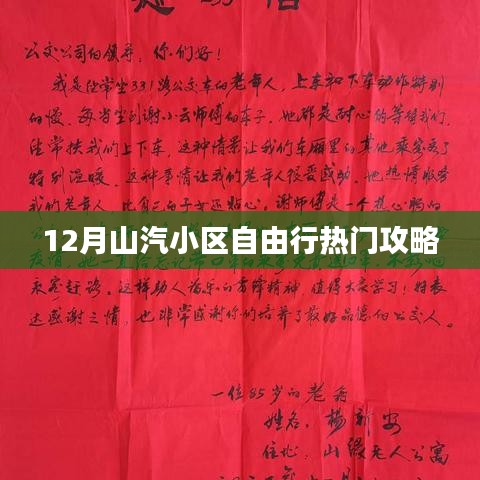 公交公司的领导，你们好！
我是经常坐331路公交车的老年人，上车和下车动作特别
的慢，每当坐到谢小云师傅的车子，她都是耐心的等待我们，
经常扶我们上下车，这种情景让我们车厢里的其他乘客感
特别温暖，这种事情让我们老年人很受感动，她热情服务
我们老年人，比自己的子还贴心，谢师傅是一个热心肠的
12月山汽小区自由行热门攻略
乘客赶路。这样助人为乐的雷锋精神，值得大家学习！特表
达感谢之情，也非常感谢你们培养了最好品德的公交人。
一位85岁的老翁
姓名：杨新安
住址：山缘老人公寓